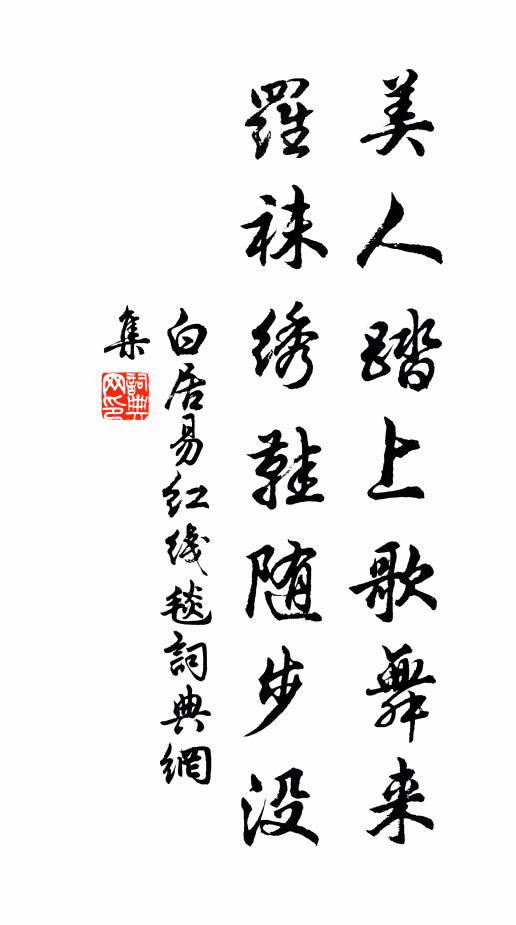 美人踏上歌舞来
羅袜绣鞋随步没
白居易红线毯詞典網
集
詞典网印